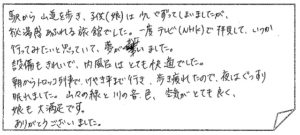 駅から山道を歩き、3才(娘)は少しぐずってしまいましたが、
秘湯感あふれる旅館でした。一度テレビ(NHK)で拝見して、いつか
行ってみたいと思っていて、夢が叶いました。
設備もきれいで、内風呂はとても快適でした。
朝からトロッコ列車で、けやき平まで行き、歩き疲れたので、夜はぐっすり
眠れました。山々の緑と川の音色、空気がとても良く、
娘も大満足です。
ありがとうございました。